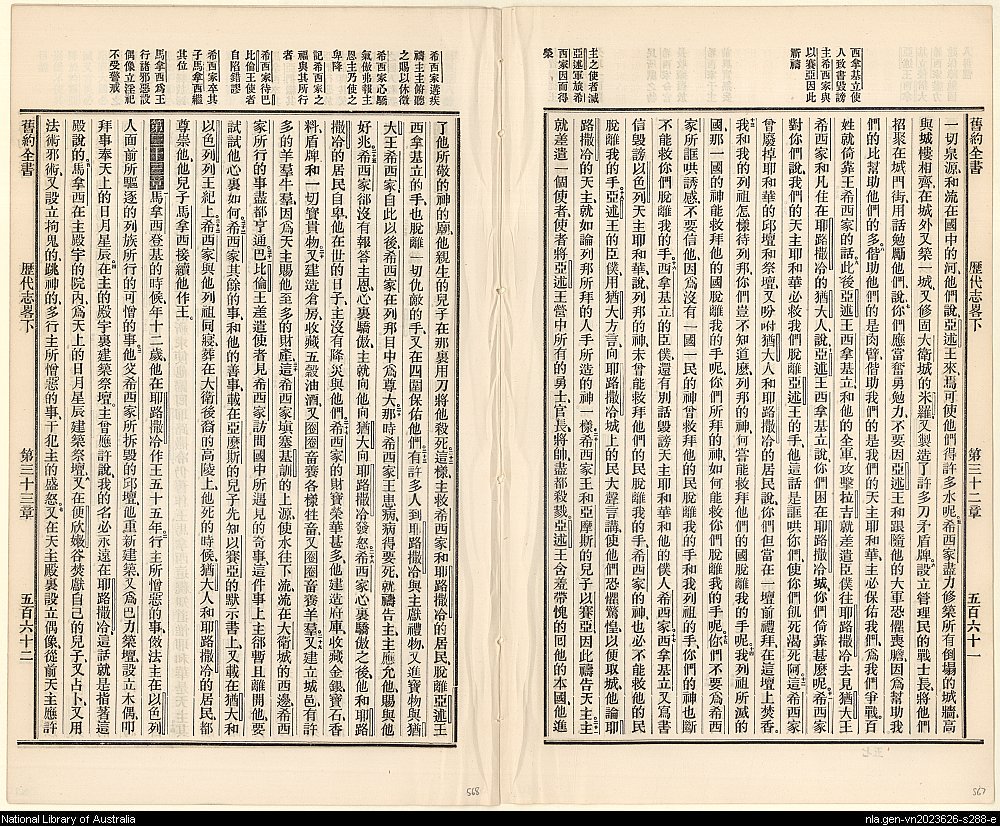 西拿基立使
人致書毀謗
主希西家與
以賽亞因此
禱
主之使者滅
亞述軍旅希
西家因而得
榮
舊約全書 歷代志畧下 第三十二章 五百六十一
一切泉源和流在國中的河他們說亞述王來焉可使他們得許多水呢希西家盡力修築所有倒塌的城牆高
與城樓相齊在城外又築一城又修固大衛城的米羅又製造了許多刀矛盾牌設立管理民的戰士長將他們
招聚在城門街用話勉勵他們說你們應當奮勇勉力不要因亞述王和跟隨他的大軍恐懼喪膽因為幫助我
們的比幫助他們的多偕助他們的是肉臂偕助我們的是我們的天主耶和華主必保佑我們為我們爭戰百
姓就倚靠王希西家的話此後亞述王西拿基立和他的全軍攻擊拉吉就差遣臣僕往耶路撒冷去見猶大王
希西家和凡住在耶路撒冷的猶大人說亞述王西拿基立說你們困在耶路撒冷城你們倚靠甚麼呢希西家
對你們說我們的天主耶和華必救我們脫離亞述王的手他這話是誆哄你們使你們飢死渴死阿這希西家
曾廢掉耶和華的邱壇和祭壇又吩咐猶大人和耶路撒冷的居民說你們但當在一壇前禮拜在這壇上焚香
我和我的列祖怎樣待列邦你們豈不知道麼列邦的神何嘗能救拜他們的國脫離我的手呢我列祖所滅的
國他那一國的神能救拜他的國脫離我的手呢你們所拜的神如何能救你們脫離我的手呢你們不要為希西
家所誆哄誘惑不要信他因為沒有一國一民的神曾救拜他的民脫離我的手和我列祖的手你們的神也斷
不能救你們脫離我的手西拿基立的臣僕還有別話毀謗天主耶和華和他的僕人希西家西拿基立又寫書
信毀謗以色列天主耶和華說列邦的神未曾能救拜他的民脫離我的手希西家的神也必不能救他的民
脫離我的手亞述王的臣僕用猶大方言向耶路撒冷城上的民大聲言講使他們恐懼驚惶以便取城他論耶
路撒冷的天主就如論列邦所拜的人手所造的神一樣希西家王和亞摩斯的兒子以賽亞因此禱告天主主
就差遣一個使者使者將亞述王營中所有的勇士官長將帥盡都殺戮亞述王含羞帶愧的回他的本國他進
希西家遘疾
禱主主俯聽
之賜以休徵
希西家心驕
氣傲弗報主
恩主乃使之
卑降
記希西家之
福與其所行
者
希西家待巴
比倫王使者
自陷錯謬
希西家卒其
子馬拿西繼
其位
馬拿西為王
行諸邪惡設
偶像立淫祀
不受警戒
了他所敬的神的廟他親生的兒子在那裏用刀將他殺死這樣主救希西家和耶路撒冷的居民脫離亞述王
西拿基立的手也脫離一切仇敵的手又在四圍保佑他們有許多人到耶路撒冷與主獻禮物又進寶物與猶
大王希西家自此以後希西家在列邦目中為尊大那時希西家王患病病得要死就禱告主主應允他賜與他
好兆希西家卻沒有報答主恩心裏驕傲主就向他向猶大向耶路撒冷發怒希西家心裏驕傲之後他和耶路
撒冷的居民自卑他在世的日子主沒有降災與他們希西家的財寶榮華甚多他建造府庫收藏金銀寶石香
料盾牌和一切寶貴物又建造倉房收藏五穀油酒又圈圈畜養各樣牲畜又圈圈畜養羊羣又建立城邑有許
多的羊羣牛羣因為天主賜他至多的財產這希西家塡塞基訓的上源使水往下流流在大衛城的西邊希西
家所行的事盡都亨通巴比倫王差遣使者見希西家訪問國中所遇見的奇事這件事上主都暫且離開他要
試試他心裏如何希西家其餘的事和他的善事載在亞麼斯的兒子先知以賽亞的默示書上又載在猶大和
以色列列王紀上希西家與他列祖同寢葬在大衛後裔的高陵上他死的時候猶大人和耶路撒冷的居民都
尊崇他他兒子馬拿西接續他作王
第三十三章馬拿西登基的時候年十二歲他在耶路撒冷作王五十五年行主所憎惡的事倣法主在以色列
人面前所驅逐的列族所行的可憎的事他父希西家所拆毀的邱壇他重新建築又為巴力築壇設立木偶叩
拜事奉天上的日月星辰在主的殿宇裏建築祭壇主曾應許說我的名必永遠在耶路撒冷這話就是指著這
殿說的馬拿西在主殿宇的院內為天上的日月星辰建築祭壇又在便欣嫩谷焚獻自己的兒子又占卜又用
法術邪術又設立拘鬼的跳神的多行主所憎惡的事干犯主的盛怒又在天主殿裏設立偶像從前天主應許
舊約全書 歷代志畧下 第三十三章 五百六十二
568
567
National Library of Australia
nla.gen-vn2023626-s288-e